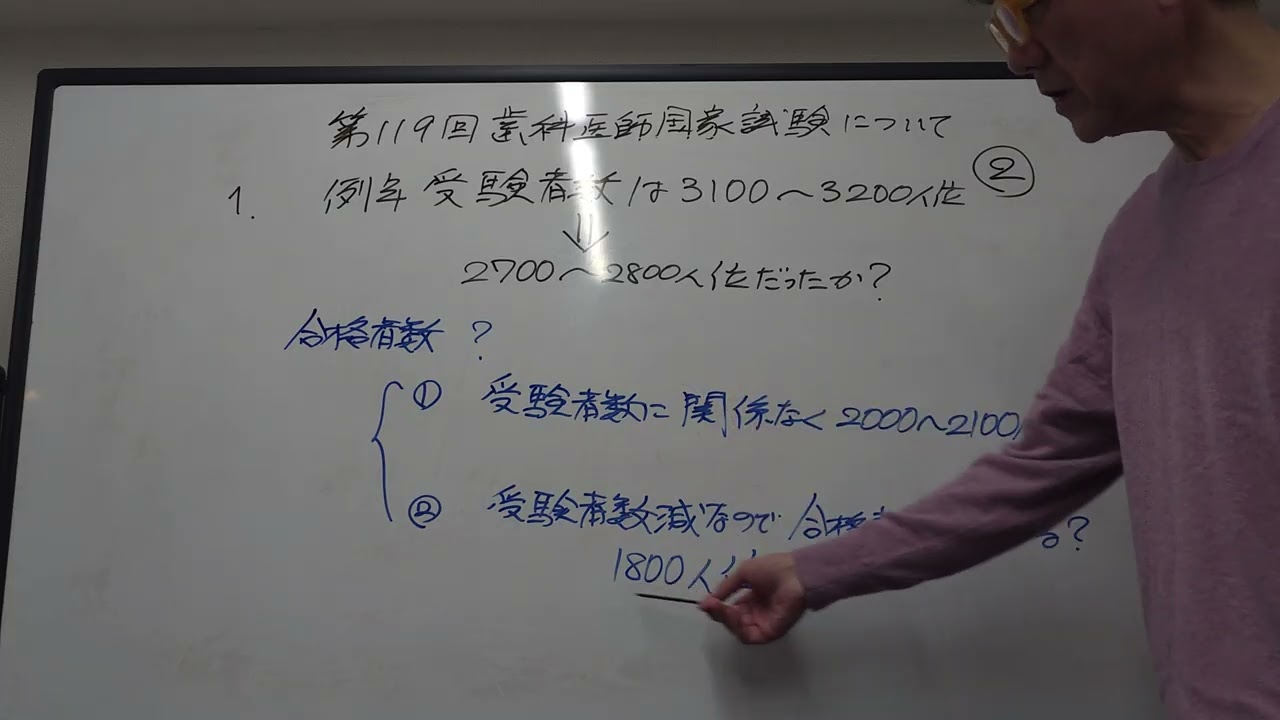 第119回歯科医師国家試験について
1. 例年 受験者数は3100～3200人位 ②
⇓
2700～2800人位だったか?
合格者数 ?
① 受験者数に関係なく2000～2100
② 受験者数減なので合格 る?
1800人